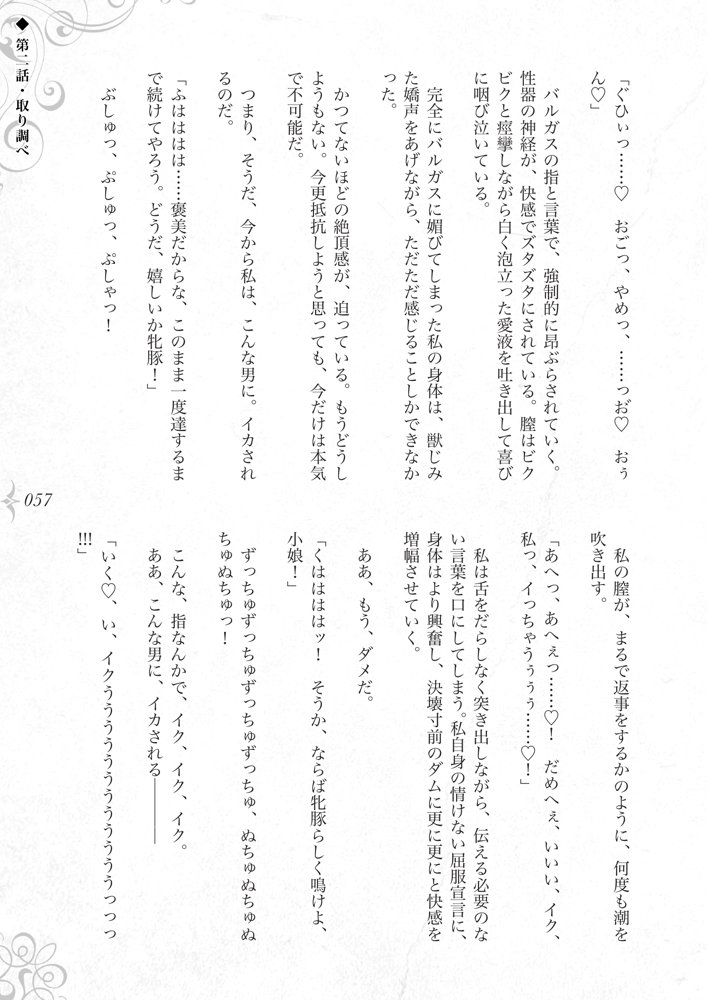 ◆ 第二話・取り調べ
「ぐひぃっ……♡　おごっ、やめっ、……っお゛♡　おぅ
ん♡」
バルガスの指と言葉で、強制的に昂ぶらされていく。
性器の神経が、快感でズタズタにされている。膣はビク
ビクと痙攣しながら白く泡立った愛液を吐き出して喜び
に咽び泣いている。
完全にバルガスに媚びてしまった私の身体は、獣じみ
た嬌声をあげながら、ただただ感じることしかできなか
った。
かつてないほどの絶頂感が、迫っている。もうどうし
ようもない。今更抵抗しようと思っても、今だけは本気
で不可能だ。
つまり、そうだ、今から私は、こんな男に。イカされ
るのだ。
「ふはははは……褒美だからな、このまま一度達するま
で続けてやろう。どうだ、嬉しいか牝豚！」
ぶしゅっ、ぷしゅっ、ぷしゃっ！
私の膣が、まるで返事をするかのように、何度も潮を
吹き出す。
「あへっ、あへぇっ……♡！　だめへぇ、いいい、イク、
私っ、イっちゃうぅぅぅ……♡！」
私は舌をだらしなく突き出しながら、伝える必要のな
い言葉を口にしてしまう。私自身の情けない屈服宣言に、
身体はより興奮し、決壊寸前のダムに更に更にと快感を
増幅させていく。
ああ、もう、ダメだ。
「くはははははッ！　そうか、ならば牝豚らしく鳴けよ、
小娘！」
ずっちゅずっちゅずっちゅずっちゅ、ぬちゅぬちゅぬ
ちゅぬちゅっ！
こんな、指なんかで、イク、イク、イク。
ああ、こんな男に、イカされる――――
「いく♡、い、イクうううううううううううううっっっ
!!!」
057